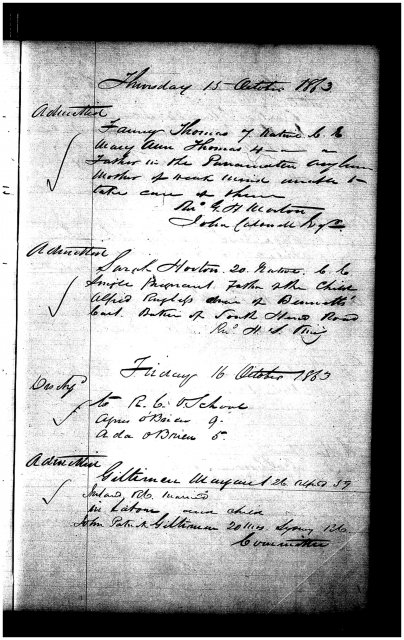 Thursday 15 October 1863
Admitted
Fanny Thomas 7 Native C. E.
Mary Ann Thomas 4 — " "
Father in the Parramatta Asylum
Mother of Weak Mind unable to
take care of them
Revd G. H. Moreton
John Caldwell Esqr
Admitted
Sarah Horton. 20. Native. C. E.
Single Pregnant. Father of the Child
Alfred of Bennetts
Cart. Baker of South Head Road
Revd H. S. King
Friday 16 October 1863
to R. C. O School
Agnes O'Brien 9.
Ada O'Brien 5.
Admitted
Giltinan Margaret 26 59
Ireland, RC. Married
in Labour and child
John Patrick Giltinan 20 Mos Sydney RC
Committee